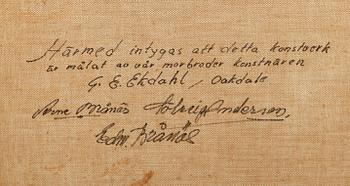 Härmed intygas att detta konstverk
är målat av vår morbroder konstnären
G. E. Ekdahl, Oakdale
Arne Månås Solveig Anderson,
Edw. Brånäs